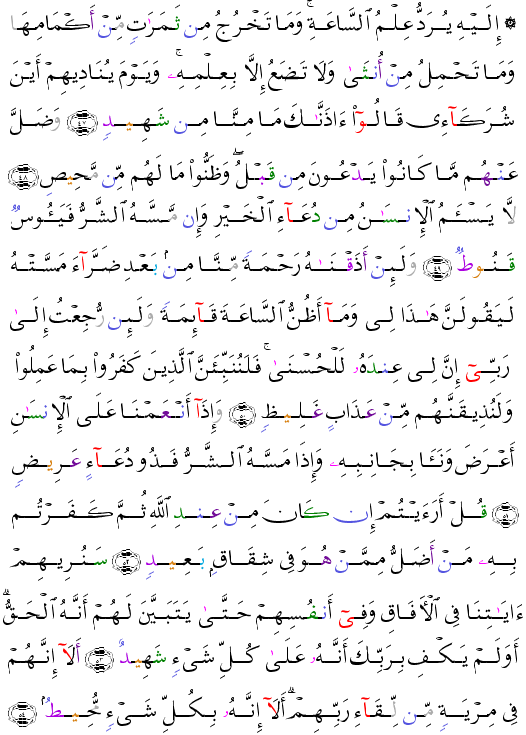 ۞ إِلَيْهِ يُرَدُّ عِلْمُ ٱلسَّاعَةِ ۚ وَمَا تَخْرُجُ مِن ثَمَرَٰتٍ مِّنْ أَكْمَامِهَا
وَمَا تَحْمِلُ مِنْ أُنثَىٰ وَلَا تَضَعُ إِلَّا بِعِلْمِهِۦ ۚ وَيَوْمَ يُنَادِيهِمْ أَيْنَ
شُرَكَآءِى قَالُوٓا۟ ءَاذَنَّٰكَ مَا مِنَّا مِن شَهِيدٍ ﴿٤٧﴾ وَضَلَّ
عَنْهُم مَّا كَانُوا۟ يَدْعُونَ مِن قَبْلُ ۖ وَظَنُّوا۟ مَا لَهُم مِّن مَّحِيصٍ ﴿٤٨﴾
لَّا يَسْـَٔمُ ٱلْإِنسَٰنُ مِن دُعَآءِ ٱلْخَيْرِ وَإِن مَّسَّهُ ٱلشَّرُّ فَيَـُٔوسٌ
قَنُوطٌ ﴿٤٩﴾ وَلَئِنْ أَذَقْنَٰهُ رَحْمَةً مِّنَّا مِنۢ بَعْدِ ضَرَّآءَ مَسَّتْهُ
لَيَقُولَنَّ هَٰذَا لِى وَمَآ أَظُنُّ ٱلسَّاعَةَ قَآئِمَةً وَلَئِن رُّجِعْتُ إِلَىٰ
رَبِّىٓ إِنَّ لِى عِندَهُۥ لَلْحُسْنَىٰ ۚ فَلَنُنَبِّئَنَّ ٱلَّذِينَ كَفَرُوا۟ بِمَا عَمِلُوا۟
وَلَنُذِيقَنَّهُم مِّنْ عَذَابٍ غَلِيظٍ ﴿٥٠﴾ وَإِذَآ أَنْعَمْنَا عَلَى ٱلْإِنسَٰنِ
أَعْرَضَ وَنَـَٔا بِجَانِبِهِۦ وَإِذَا مَسَّهُ ٱلشَّرُّ فَذُو دُعَآءٍ عَرِيضٍ
﴿٥١﴾ قُلْ أَرَءَيْتُمْ إِن كَانَ مِنْ عِندِ ٱللَّهِ ثُمَّ كَفَرْتُم
بِهِۦ مَنْ أَضَلُّ مِمَّنْ هُوَ فِى شِقَاقٍۭ بَعِيدٍ ﴿٥٢﴾ سَنُرِيهِمْ
ءَايَٰتِنَا فِى ٱلْءَافَاقِ وَفِىٓ أَنفُسِهِمْ حَتَّىٰ يَتَبَيَّنَ لَهُمْ أَنَّهُ ٱلْحَقُّ ۗ
أَوَلَمْ يَكْفِ بِرَبِّكَ أَنَّهُۥ عَلَىٰ كُلِّ شَىْءٍ شَهِيدٌ ﴿٥٣﴾ أَلَآ إِنَّهُمْ
فِى مِرْيَةٍ مِّن لِّقَآءِ رَبِّهِمْ ۗ أَلَآ إِنَّهُۥ بِكُلِّ شَىْءٍ مُّحِيطٌۢ ﴿٥٤﴾